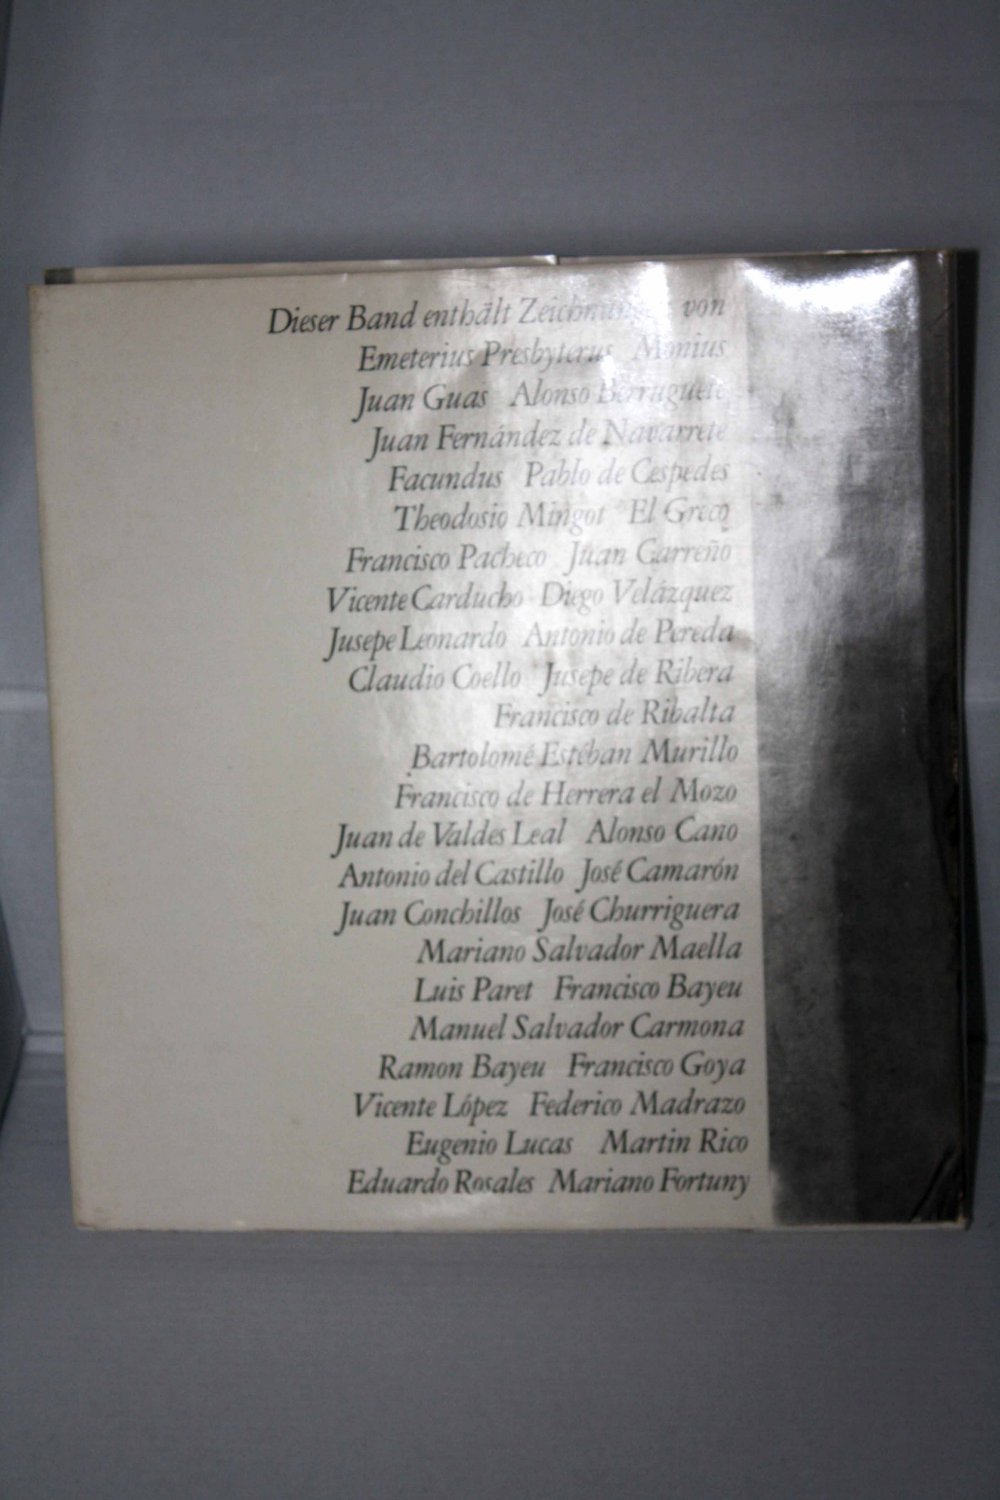 Dieser Band enthält Zeichnungen von
Emeterius Presbyterus Monius
Juan Guas Alonso Berruguete
Juan Fernández de Navarrete
Facundus Pablo de Cespedes
Theodosio Mingot El Greco
Francisco Pacheco Juan Carreño
Vicente Carducho Diego Velázquez
Jusepe Leonardo Antonio de Pereda
Claudio Coello Jusepe de Ribera
Francisco de Ribalta
Bartolomé Estéban Murillo
Francisco de Herrera el Mozo
Juan de Valdes Leal Alonso Cano
Antonio del Castillo José Camarón
Juan Conchillos José Churriguera
Mariano Salvador Maella
Luis Paret Francisco Bayeu
Manuel Salvador Carmona
Ramon Bayeu Francisco Goya
Vicente López Federico Madrazo
Eugenio Lucas Martin Rico
Eduardo Rosales Mariano Fortuny